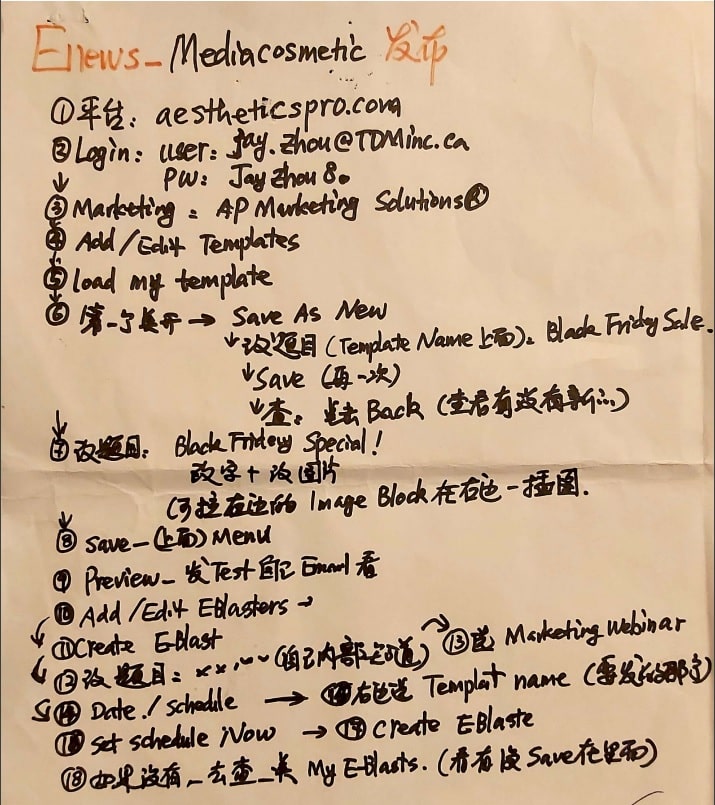 Enews_Mediacosmetic 发布
①平台: aestheticspro.com
②Login: user: jay.zhou@TDMinc.ca
↓ PW: Jayzhou8.
③Marketing: AP Marketing Solutions®
④Add/Edit Templates
⑤load my template
⑥第一个展开→ Save As New
↓改题目(Template Name上面): Black Friday Sale.
↓Save (再一次)
↓查: 点击Back (查看有没有新的)
↓
⑦改题目: Black Friday Special!
改字+改图片
(可拉左边的 Image Block在右边-插图.
↓
⑧Save_(上面) Menu
⑨Preview_发Test自己Email看
⑩Add/Edit EBlasters→
⑪Create EBlast
⑫改题目: xx (自己内部知道) ⑬选 Marketing Webinar
⑭Date / schedule → 右边选 Templat name (要发的那个)
set schedule Now → ⑰Create EBlaste
⑱如果没有_去查_点 My E-Blasts. (看有没Save在里面)